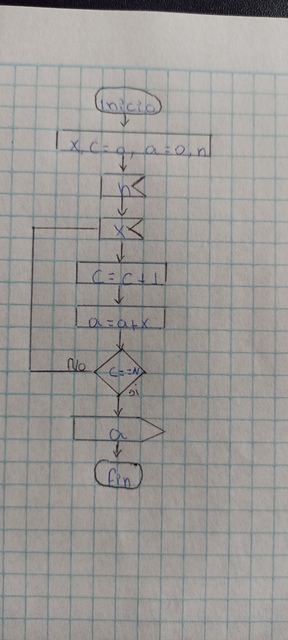 inicio
x, c=0, a=0, n
n
x
c=c+1
a=a+x
No
c==N
si
a
fin